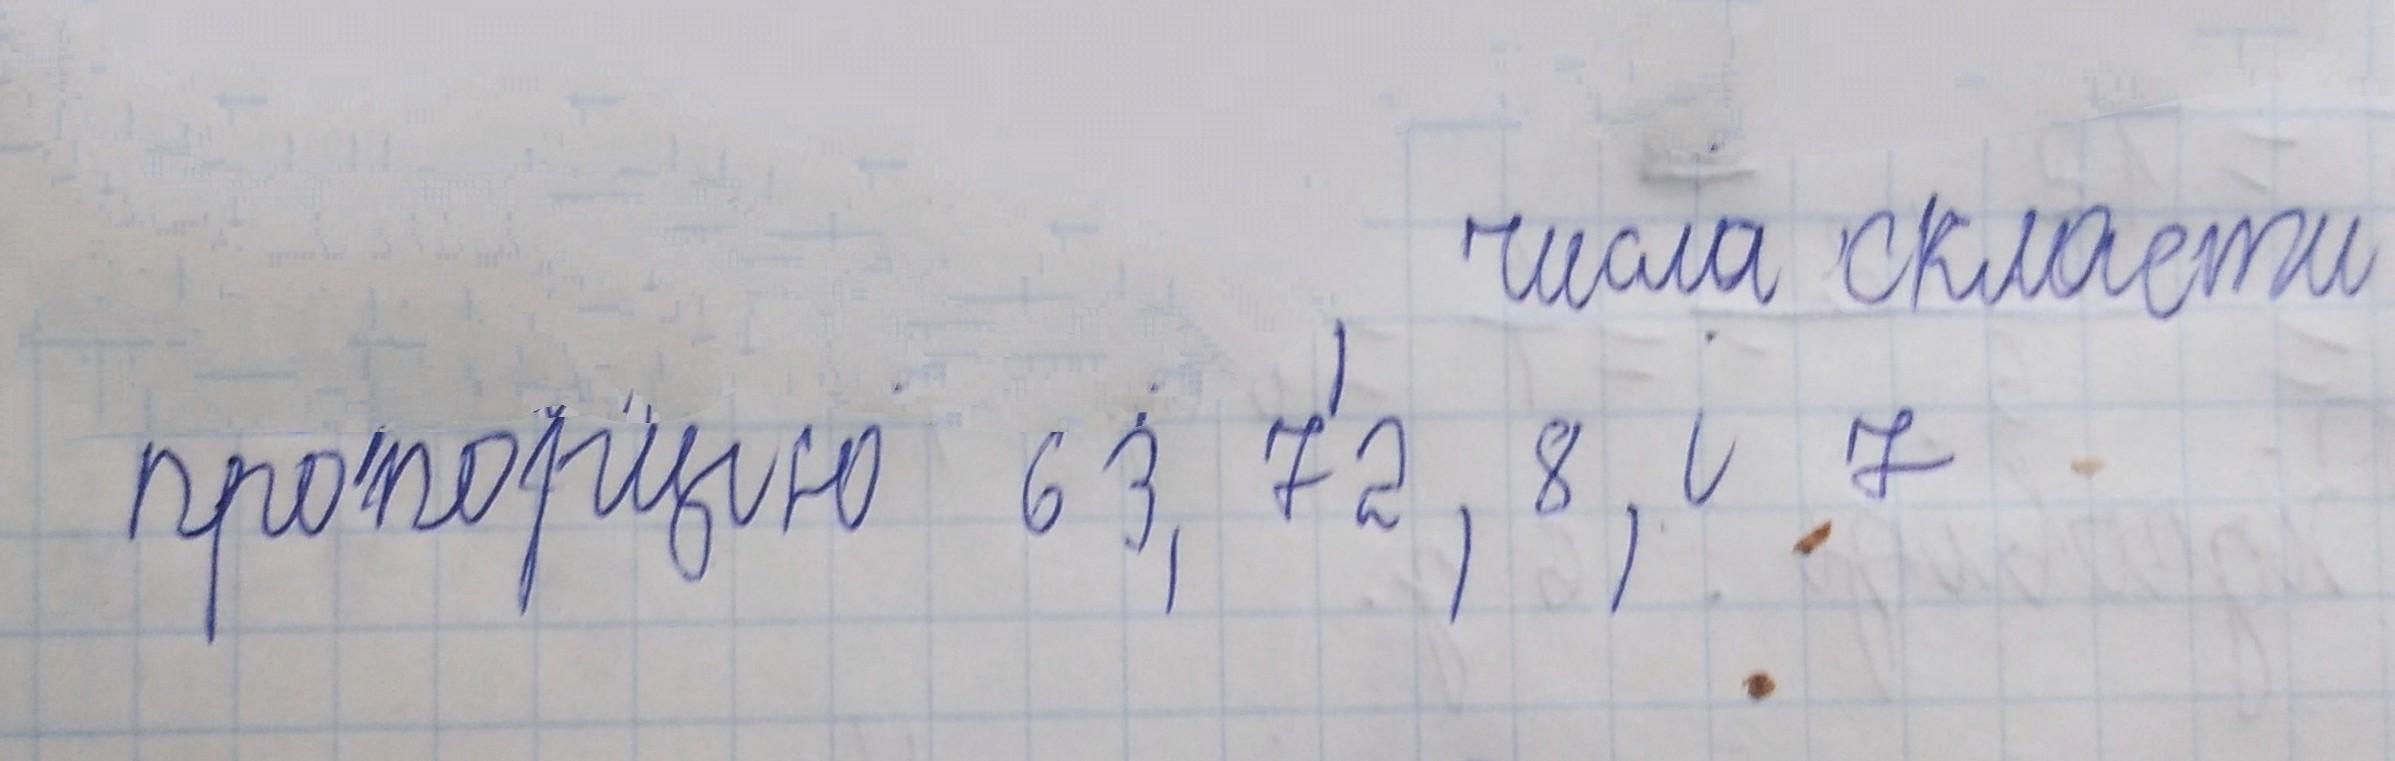 числа скласти
пропорцію 63, 72, 8, і 7